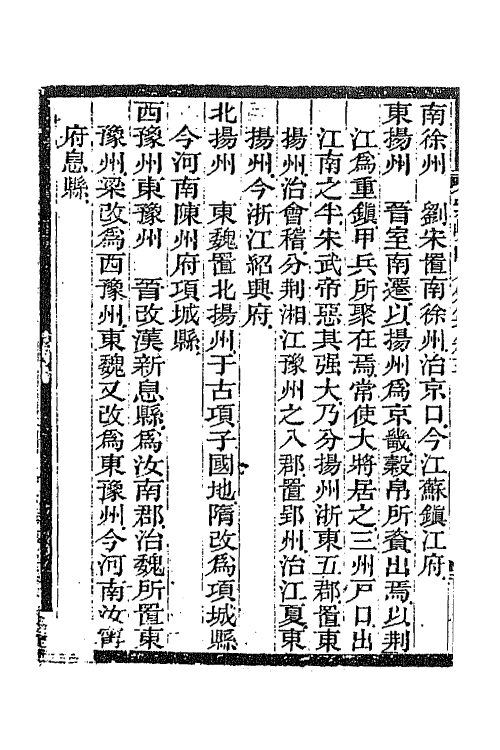 南徐州　劉宋置南徐州治京口今江蘇鎮江府
東揚州　晉室南遷以揚州為京畿穀帛所資出焉以荆
江為重鎮甲兵所聚在焉常使大將居之三州戸口出
江南之半宋武帝惡其强大乃分揚州浙東五郡置東
揚州治會稽分荆湘江豫州之八郡置郢州治江夏東
揚州今浙江紹興府
北揚州　東魏置北揚州于古項子國地隋改為項城縣
今河南陳州府項城縣
西豫州東豫州　晉改漢新息縣為汝南郡治魏所置東
豫州梁改為西豫州東魏又改為東豫州今河南汝寗
府息縣